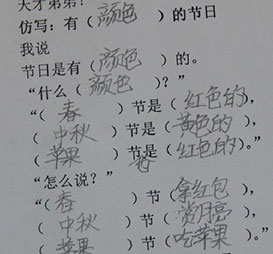 天才弟弟？
仿写：有（颜色）的节日
我说
节日是有（颜色）的。
“什么（颜色）？”
“（春）节是（红色的），
（中秋）节是（黄色的），
（苹果）节是（红色的）。”
“怎么说？”
“（春）节（拿红包），
（中秋）节（赏月亮），
（苹果）节（吃苹果）。”